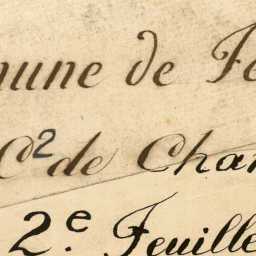 mune de Fe
C2 de Char
2e. Feuille